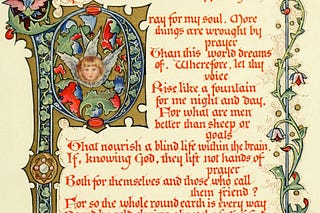 Pray for my soul. More
things are wrought by
prayer
Than this world dreams
of. Wherefore, let thy
voice
Rise like a fountain
for me night and day.
For what are men
better than sheep or
goats
That nourish a blind life within the brain,
If, knowing God, they lift not hands of
prayer
Both for themselves and those who call
them friend?
For so the whole round earth is every way